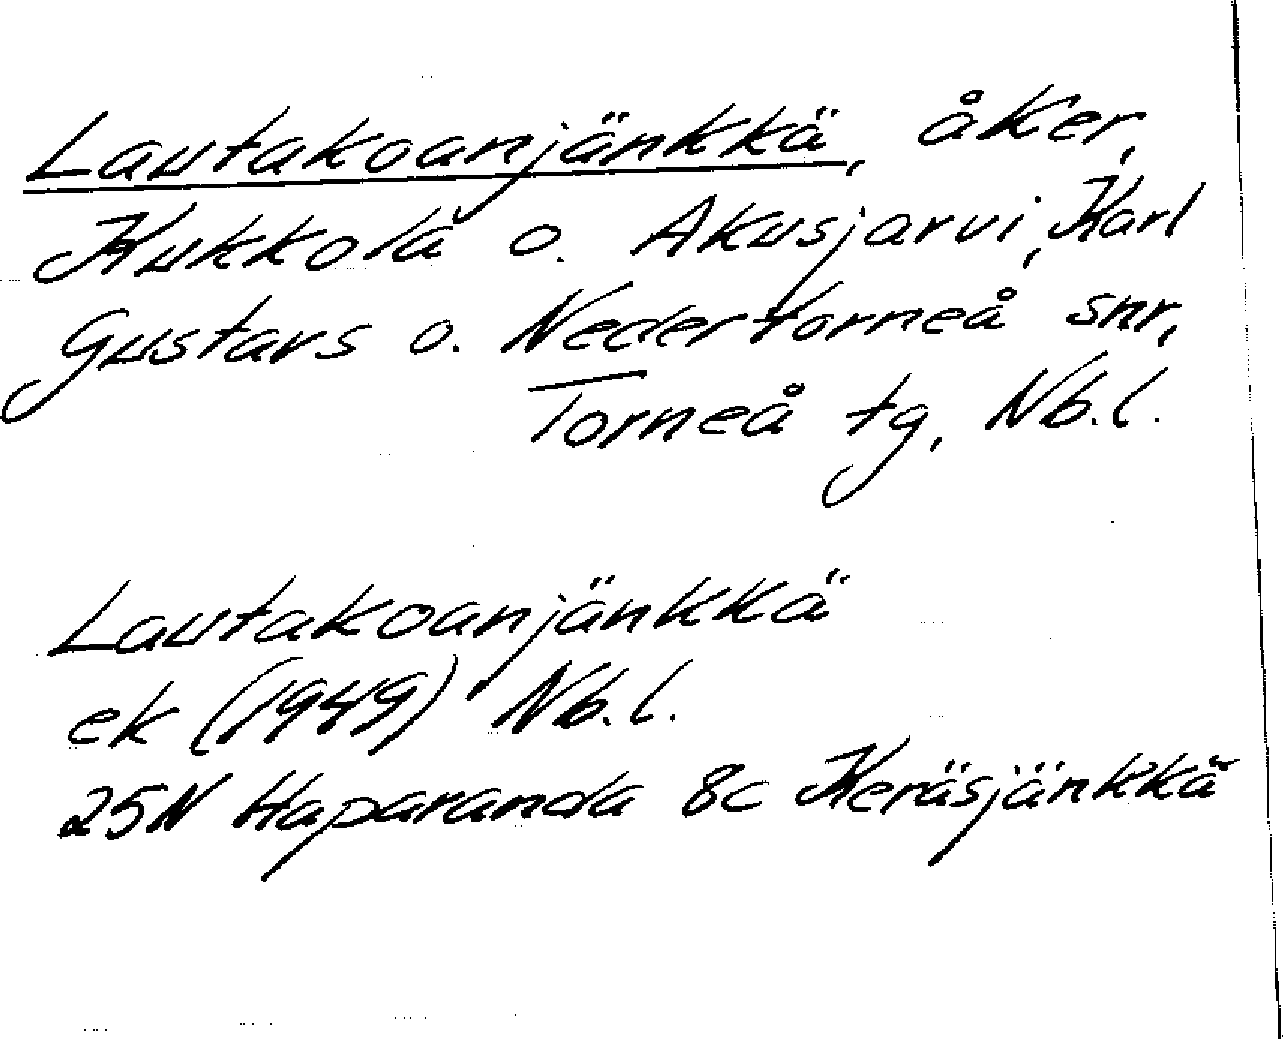 Lautakoanjänkkä, åker,
Kukkola o. Akusjarvi, Karl
Gustavs o. Nedertorneå snr,
Torneå tg, Nb.l.
Lautakoanjänkkä
ek (1949) Nb.l.
25N Haparanda 8c Keräsjänkkä